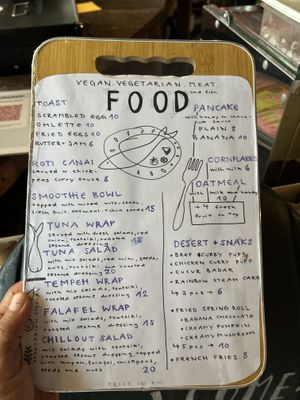 VEGAN. VEGETARIAN. MEAT.
and fish
FOOD
TOAST
SCRAMBLED EGGS 10
OMLETTE 10
FRIED EGGS 10
BUTTER+JAM 6
ROTI CANAI
served w chick-
peas curry sauce 8
SMOOTHIE BOWL
topped with mixed nuts, seeds,
fresh fruit, oatmeal, chia seeds 15
TUNA WRAP
served with fresh salads, red
onion, tzatziki, roasted
sesame dressing 15
TUNA SALAD
with mix salads, red onion, seeds
nuts, tzatziki, roasted
sesame dressing 20
TEMPEH WRAP
with mix salads, tzatziki,
roasted sesame dressing 12
FALAFEL WRAP
with mix salads, tzatziki,
roasted sesame dressing 15
CHILLOUT SALAD
mix salads with tzatziki,
roasted sesame dressing, topped
with tempeh, falafel, chickpeas,
seeds and nuts 20
PANCAKE
with honey or choco-
nut sauce
PLAIN 8
BANANA 10
CORNFLAKES
with milk 6
OATMEAL
with milk and honey
10
+4 fresh
fruit on top
DESERT + SNAKS
• BEEF CURRY PUFF
• CHICKEN CURRY PUFF
• CUCUR BADAK
• RAINBOW STEAM CAKE
↳ 3 pcs → 6
• FRIED SPRING ROLL
• BANANA CHOCOLATE
• CREAMY PUMPKIN
• CREAMY MUSHROOM
↳ 5 pcs → 10
• FRENCH FRIES 8
PRICE IN RM